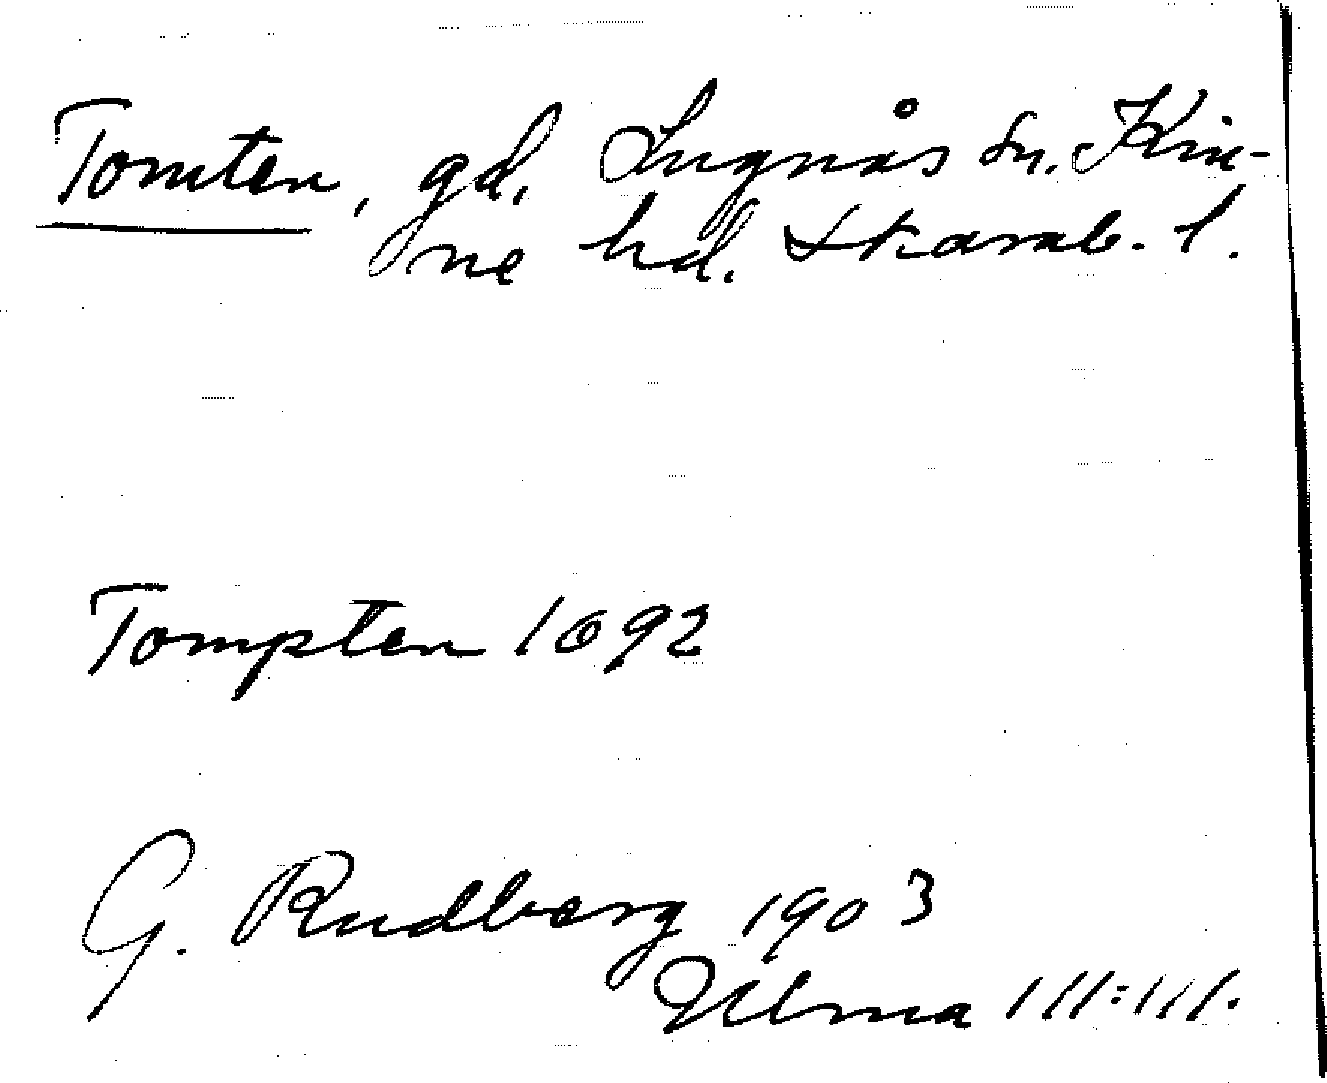 Tomten, gd. Lugnås sn. Kin-
ne hd. Skarab. l.
Tompten 1692
G. Rudberg 1903
Ulma 111:111.